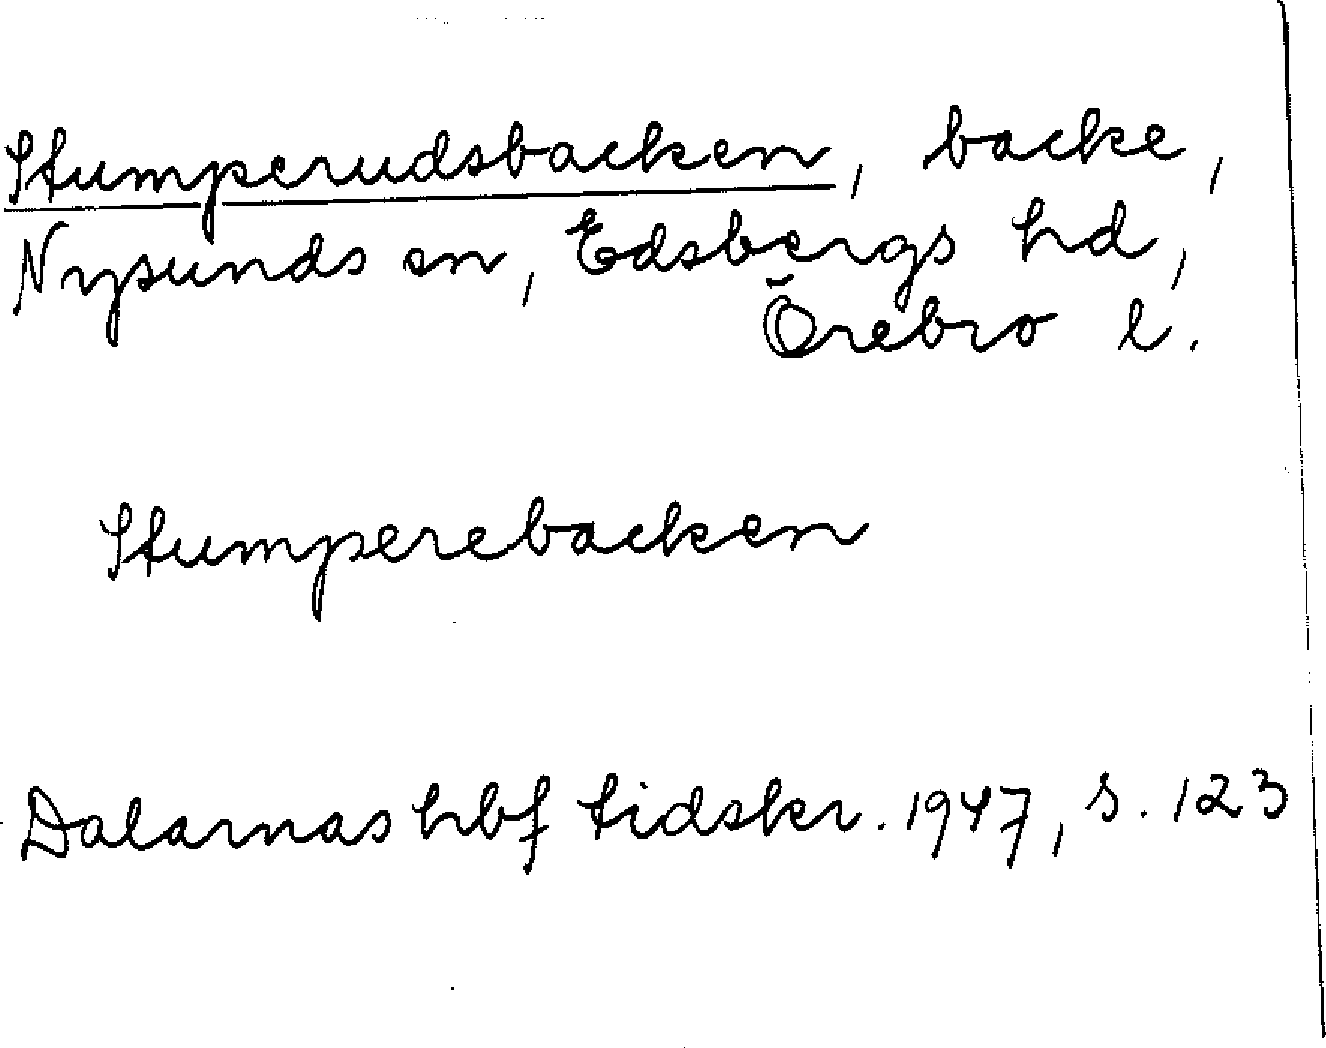 Stumperudsbacken, backe,
Nysunds sn, Edsbergs hd,
Örebro l.
Stumperebacken
Dalarnas hbf tidskr. 1947, s. 123